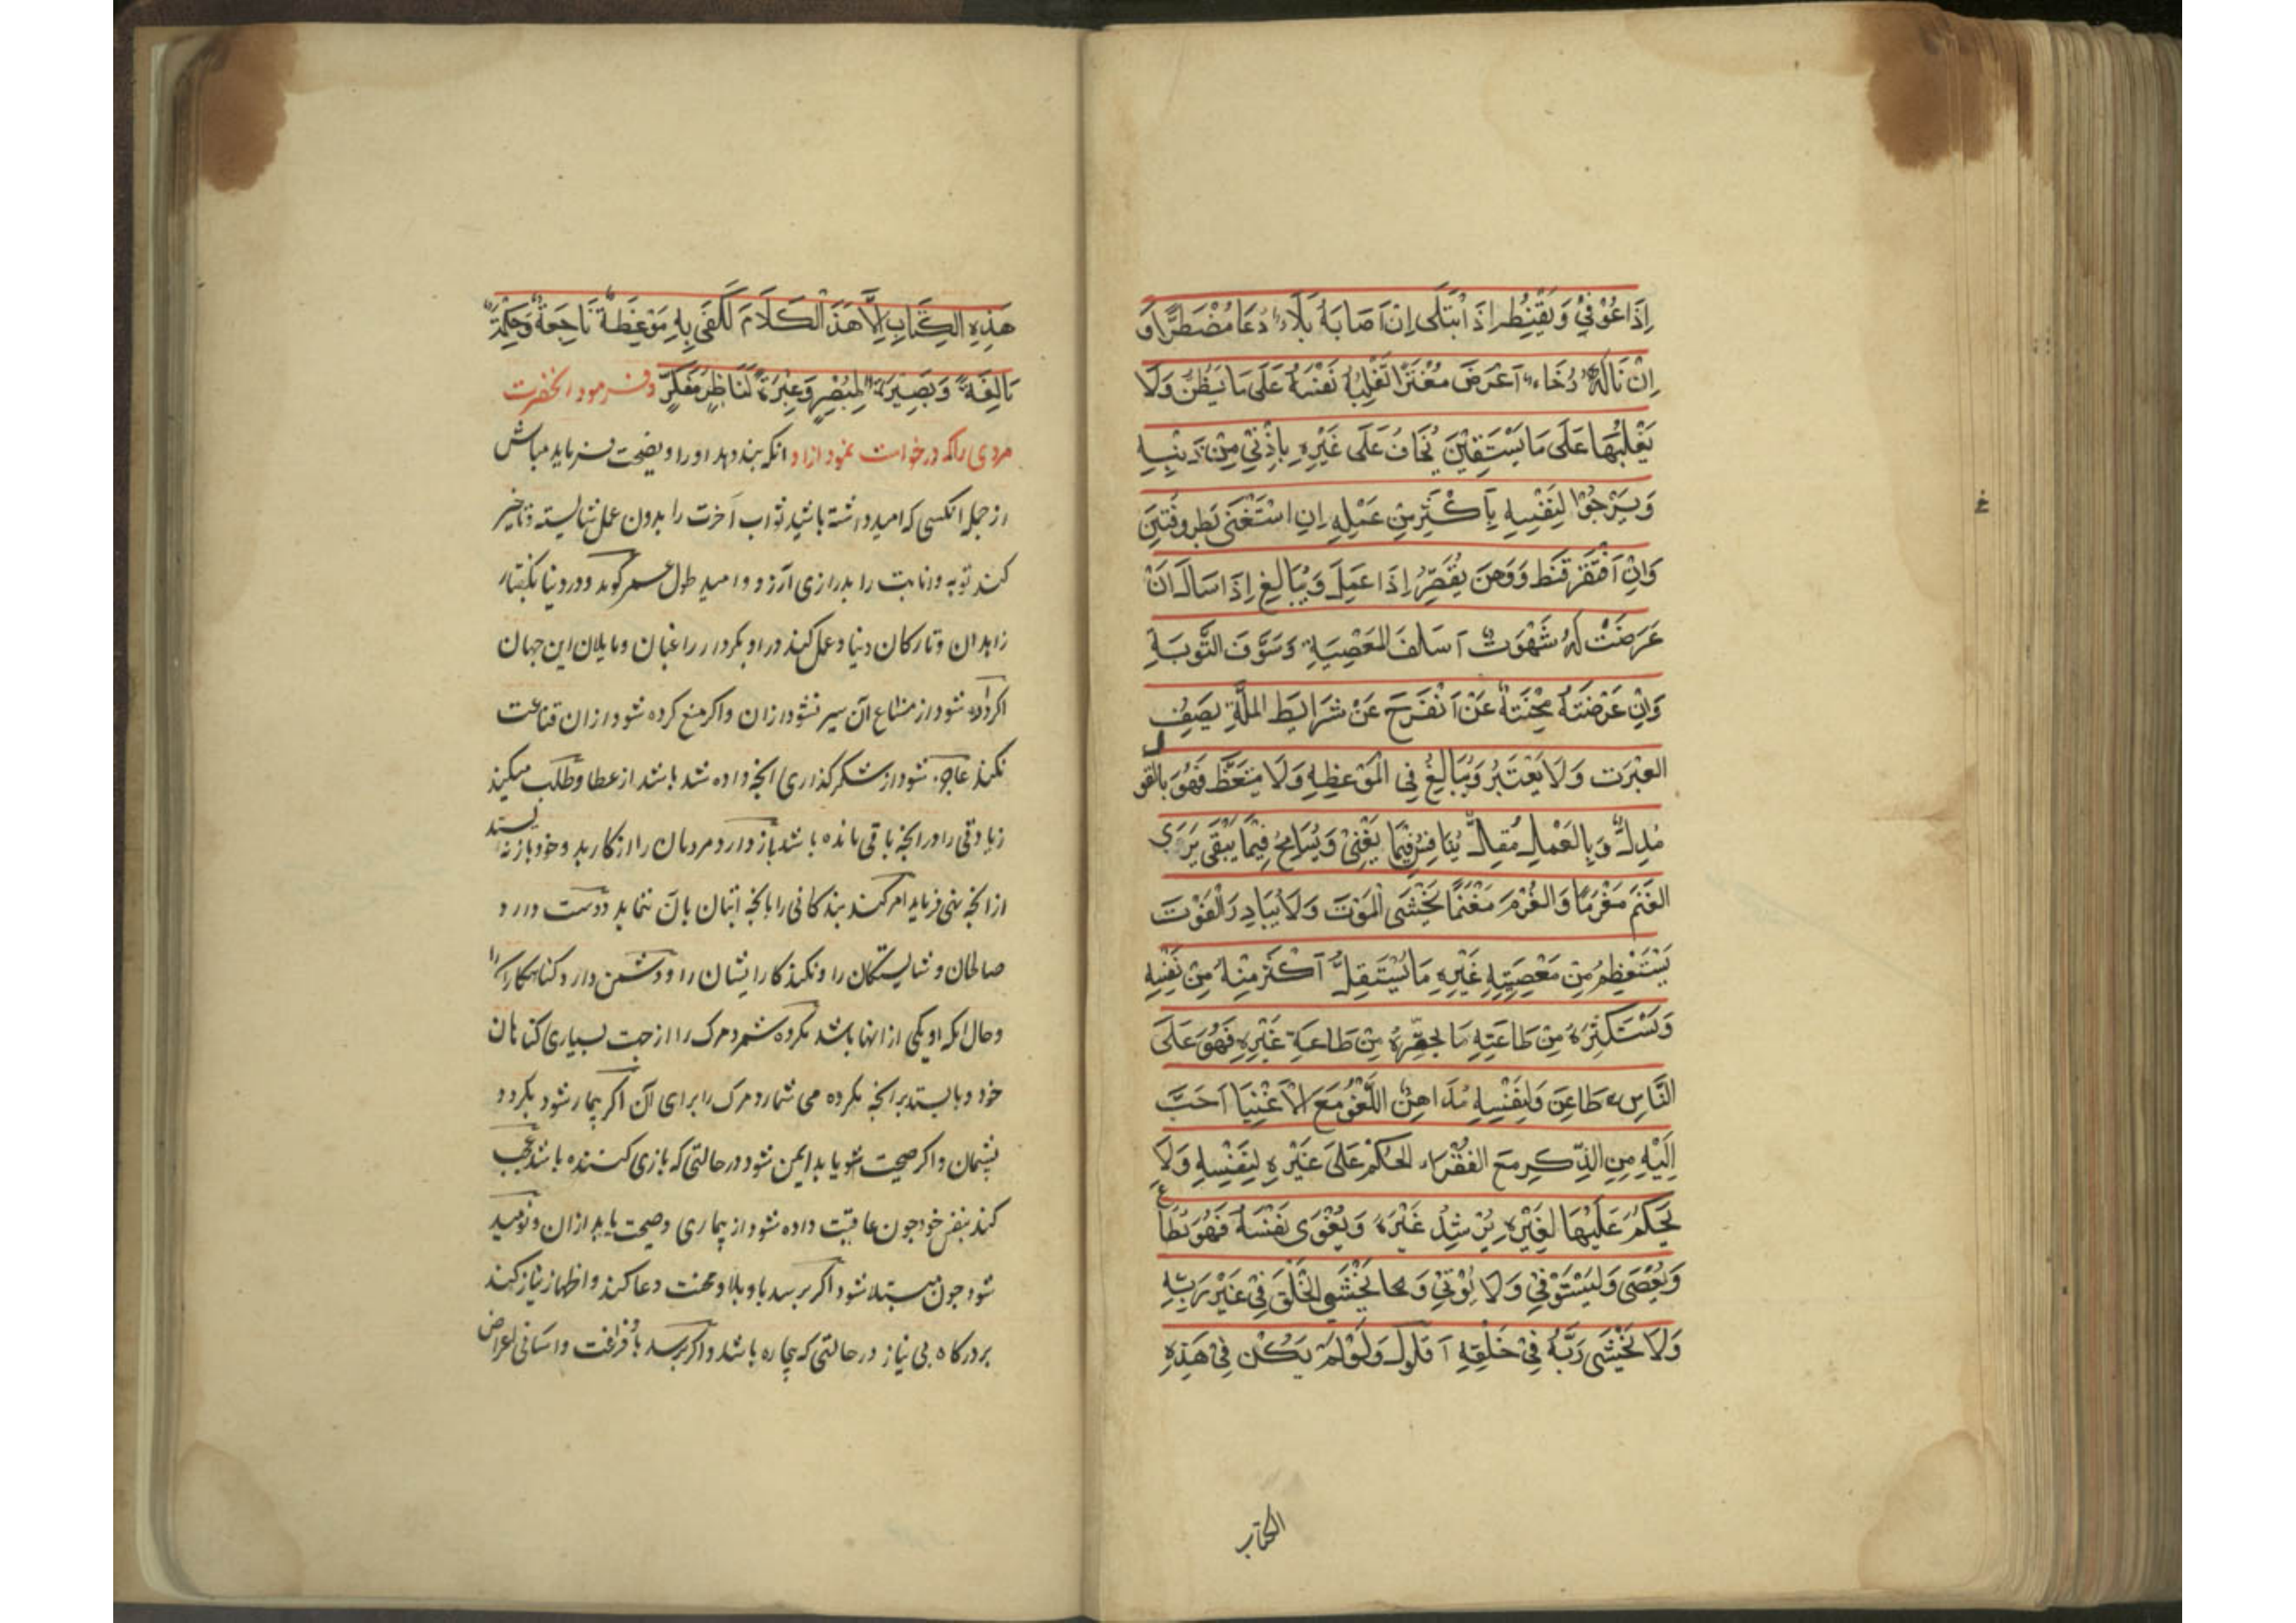 اِذَا عُوْفِيْ وَيَقْنِطُ اِذَ ابْتَلٰى اِنْ اَصَابَهُ بَلَاءٌ دُعَا مُضْطَرًّا وَ
اِنْ نَالَهُ رُخَاءٌ اَعْرَضَ مُغْتَرًّا تَغْلِبُهُ نَفْسَهُ عَلَى مَا يَظُنُّ وَلَا
يَغْلِبُهَا عَلَى مَا يَسْتَيْقِنُ يُخَافُ عَلَى غَيْرِهِ بِاَدْنٰى مِنْ ذَنْبِهِ
وَيَرْجُوْا لِنَفْسِهِ بِاَكْثَرَ مِنْ عَمَلِهِ اِنِ اسْتَغْنٰى بَطِرَ وفُتِنَ
وَاِنْ اَفْتَقَرَ قَنَطَ وَوَهَنَ يُقَصِّرُ اِذَا عَمِلَ وَيُبَالِغُ اِذَا سَاَلَ اَنْ
عَرَضَتْ لَهُ شَهْوَتٌ اَسَلَفَ المَعْصِيَةِ وَسَوَّفَ التَّوبَةِ
وَاِنْ عَرَضَتَهُ مِحْنَتَهٌ عَنْ اَنْفَرَجَ عَنْ شَرَايَطِ المِلَّةِ يَصِفُ
العِبْرَت وَلَا يَعْتَبِرُ وَيُبَالِغُ فِي الْمَوْعِظِهِ وَلَا مَتَعَّظَ فَهُوَ بِالْقَول
مُدِلٌّ وَبِالعَمَلِ مُقِلٌّ يُنَافِسُ فِيْمَا يَفْنِىْ وَيُسَامِحُ فِيْمَا يَبْقٰى يَرَى
الغَنَمَ مَغْرَمًا وَالغُرْمَ مَغْنَمًا يَخْشَى الْمَوْتَ وَلَا يُبَادِرَ الْفَوْتَ
يَسْتَعْظِمُ مِنْ مَعْصِيَتِهِ غَيْرِهِ مَا يَسْتَقِلُّ اَكْثَرَ مِنْهُ مِنْ نَفْسِهِ
وَيَسْتَكْثِرَهُ مِنْ طَاعَتِهِ مَا يُحَقِّرُهُ مِنْ طَاعَةِ غَيْرِهِ فَهُوَ عَلَى
النَّاسِ طَاعِنَ وَلِنَفْسِهِ مُدَاهِنٌ اللَّغْوُ مَعَ الْاَغْنِيَا اَحَبَّ
اِلَيْهِ مِنِ الذِّكِرِ مَعَ الفُقْرَاء الحَكْمَ عَلَى غَيْرِهِ لِنَفْسِهِ وَلَا
يَحْكُمُ عَلَيْهَا لِغَيْرِهِ يُرْشِدُ غَيْرَهُ وَيُغْوِى نَفْسَهُ فَهُوَ يُطَاع
وَيُعْصَى وَلِيَسْتَوْفِيْ وَلَا يُوْفِيْ وَ يَخْشَى الْخَلْقَ فِيْ غَيْرِ رَبِّهِ
وَلَا يَخْشَى رَبَّهُ فِيْ خَلْقِهِ اَقُوْلُ وَلَوْلَمْ يَكُنْ فِيْ هَذِهِ
الکتاب
هَذِهِ الكِتَابِ اِلَّا هَذَ الْكَلَامَ لَكَفَى بِهِ مَوْعِظَةً نَاجَعَةً وَحِكْمَةً
بَالِغَةً وَبَصِيْرَةً لِمُبْصِرٍ وَعِبْرَةً لَنَاظِرٍ مُفَكِّرٍ و فرمود آنحضرت
مردی راکه درخواست نمود ازاو انکه پند دهد اورا و نصیحت فرماید مباش
از جمله انکسی که امید داشته باشد ثواب آخرت را بدون عمل شایسته وتاخیر
کند توبه وانابت را بدرازی آرزو و امید طول عمر گوید ودر دنیا بگفتار
زاهدان وتارکان دنیا وعمل کند در او بکردار راغبان ومایلان این جهان
اگر داده شود از متاع آن سیر نشود ازان واکر منع کرده شود ازان قناعت
نکند عاجز شود از شکر گذاری انچه داده شد باشد از عطا وطلب میکند
زیادتی را در انچه باقی مانده باشد باز دارد مردمان را از کار بد وخود باز نه ایستد
از انچه نهی فرماید امر کند بندکانی را بانچه اتیان بان ننماید دوست دارد
صالحان و شایستکان را ونکند کار ایشان را ودشمن دارد کناهکارانرا
وحال انکه او یکی از انها باشد مکروه شمرد مرک را از جهت بسیاری کناهان
خود وبایستد بر انچه مکروه می شمارد مرک را برای آن اگر بیمار شود بکردد
پشیمان واکر صحت یابد ایمن شود در حالتی که بازی کننده باشد عجب
کند بنفس خود چون عافیت داده شود از بیماری وصحت یابد ازان ونومید
شود چون مبتلا شود اکر برسد باو بلا ومحنت دعا کند واظهار نیاز کند
بدرکاه بی نیاز در حالتی که بیچاره باشد واکر برسد باو فراغت واسانی اعراض